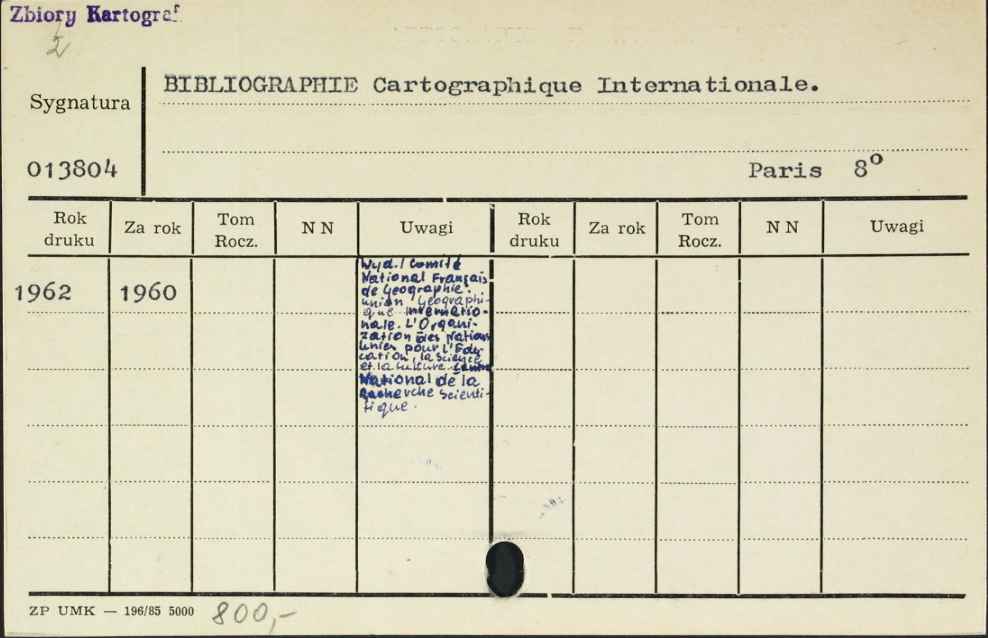 Zbiory Kartograf
BIBLIOGRAPHIE Cartographique Internationale.
Sygnatura
013804
Paris 8°
Rok druku Za rok Tom Rocz. N N Uwagi Rok druku Za rok Tom Rocz. N N Uwagi
1962 1960
Wyd. / Comité
National Français
de Géographie.
Union Géographi-
que Internatio-
nale. L'Organi-
zation des Nations
Unies pour l'Edu-
cation, la Science
et la Culture. Centre
National de la
Recherche Scienti-
fique.
ZP UMK — 196/85 5000 800,-